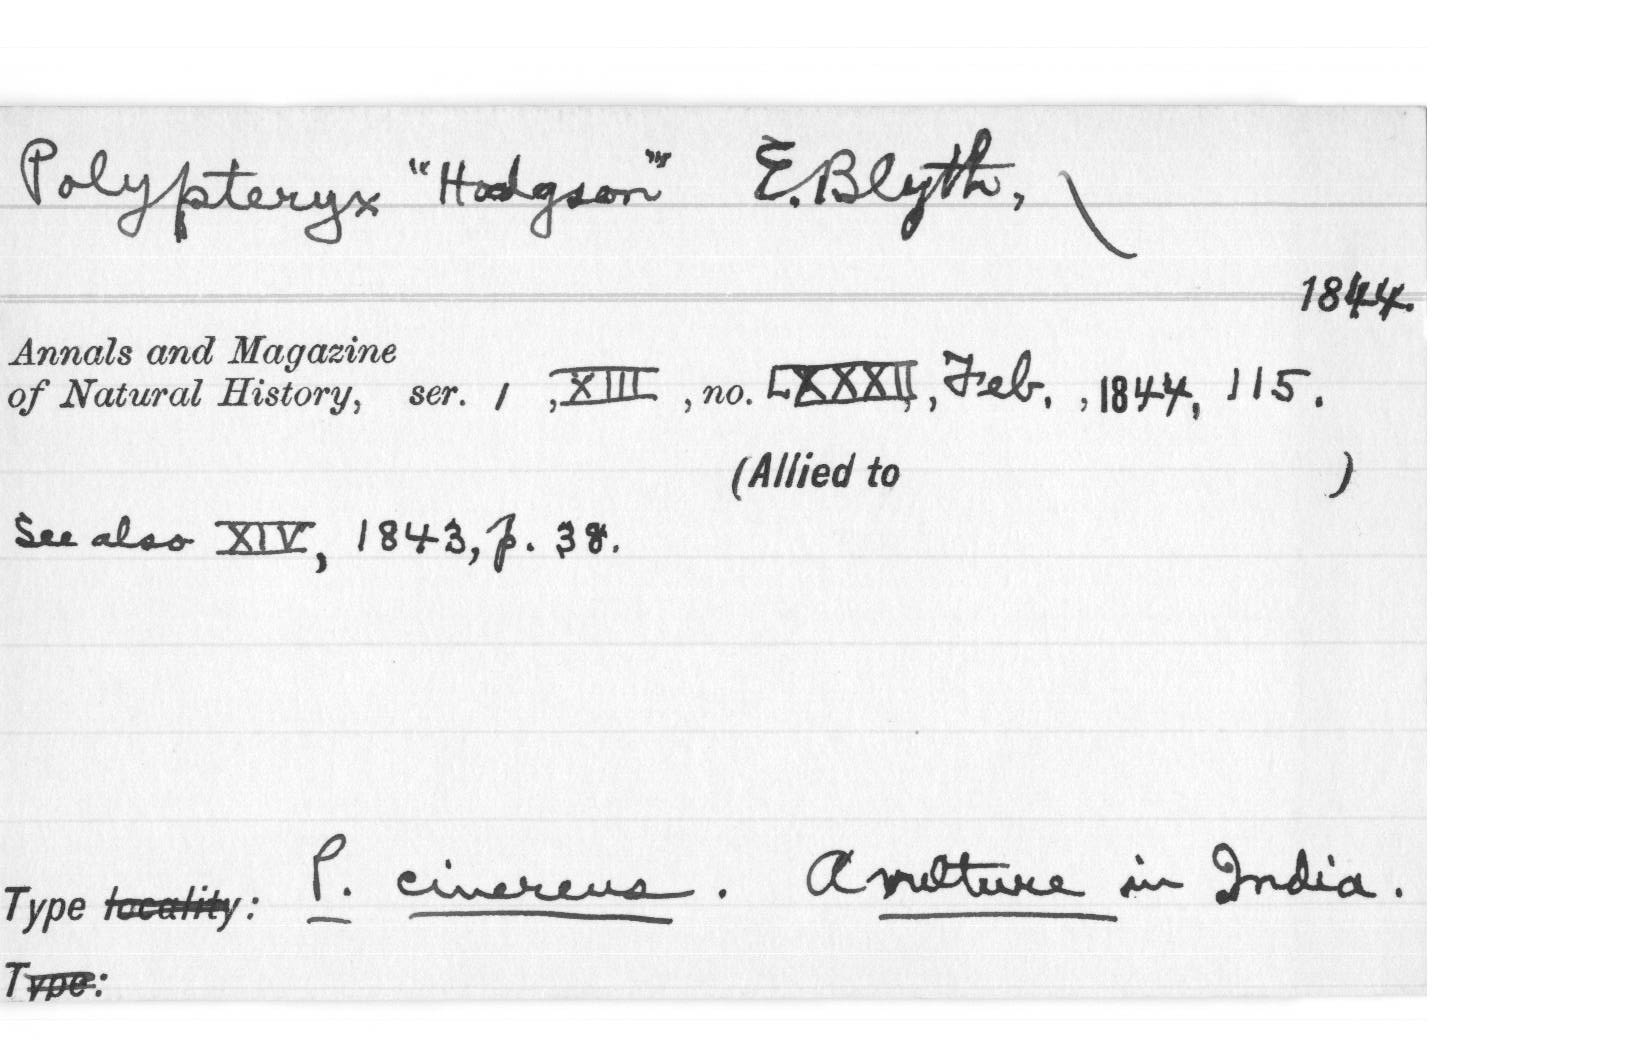 Polypteryx "Hodgson" E. Blyth,
1844.
Annals and Magazine
of Natural History, ser. 1, XIII, no. LXXXII, Feb., 1844, 115.
(Allied to )
See also XIV, 1843, p. 38.
Type locality: P. cinereus. A vulture in India.
Type: